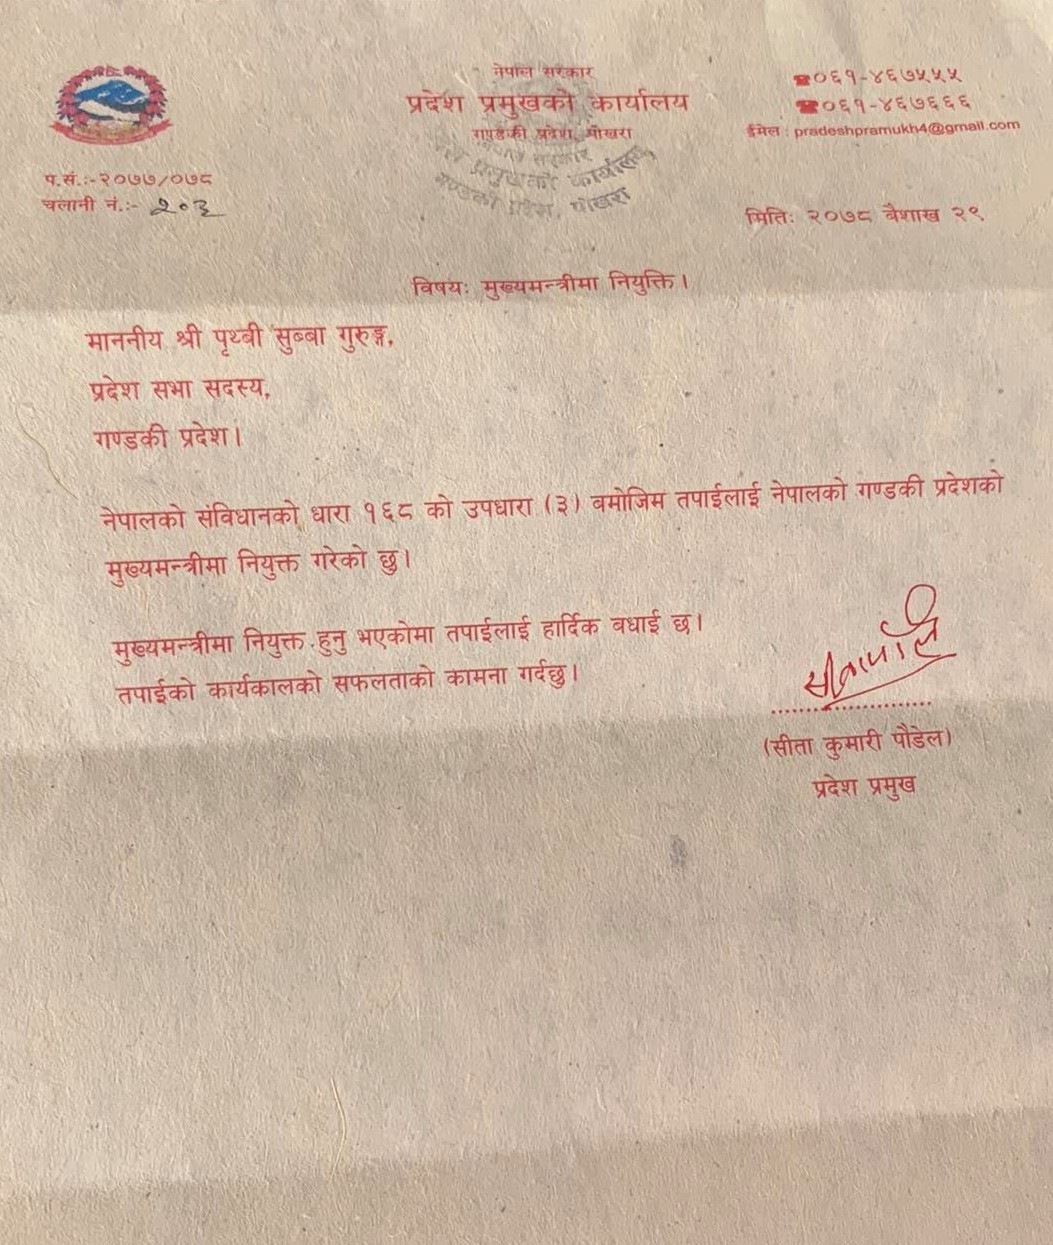 नेपाल सरकार
प्रदेश प्रमुखको कार्यालय
गण्डकी प्रदेश, पोखरा
☎०६१-४६७५५५
☎०६१-४६७६६६
ईमेल : pradeshpramukh4@gmail.com
प.सं.:-२०७७/०७८
चलानी नं.:- २०३
मिति: २०७८ बैशाख २९
नेपाल सरकार
प्रदेश प्रमुखको कार्यालय
गण्डकी प्रदेश, पोखरा
विषय: मुख्यमन्त्रीमा नियुक्ति।
माननीय श्री पृथ्बी सुब्बा गुरुङ्ग,
प्रदेश सभा सदस्य,
गण्डकी प्रदेश।
नेपालको संविधानको धारा १६८ को उपधारा (३) बमोजिम तपाईलाई नेपालको गण्डकी प्रदेशको
मुख्यमन्त्रीमा नियुक्त गरेको छु।
मुख्यमन्त्रीमा नियुक्त हुनु भएकोमा तपाईलाई हार्दिक बधाई छ।
तपाईको कार्यकालको सफलताको कामना गर्दछु।
(सीता कुमारी पौडेल)
प्रदेश प्रमुख